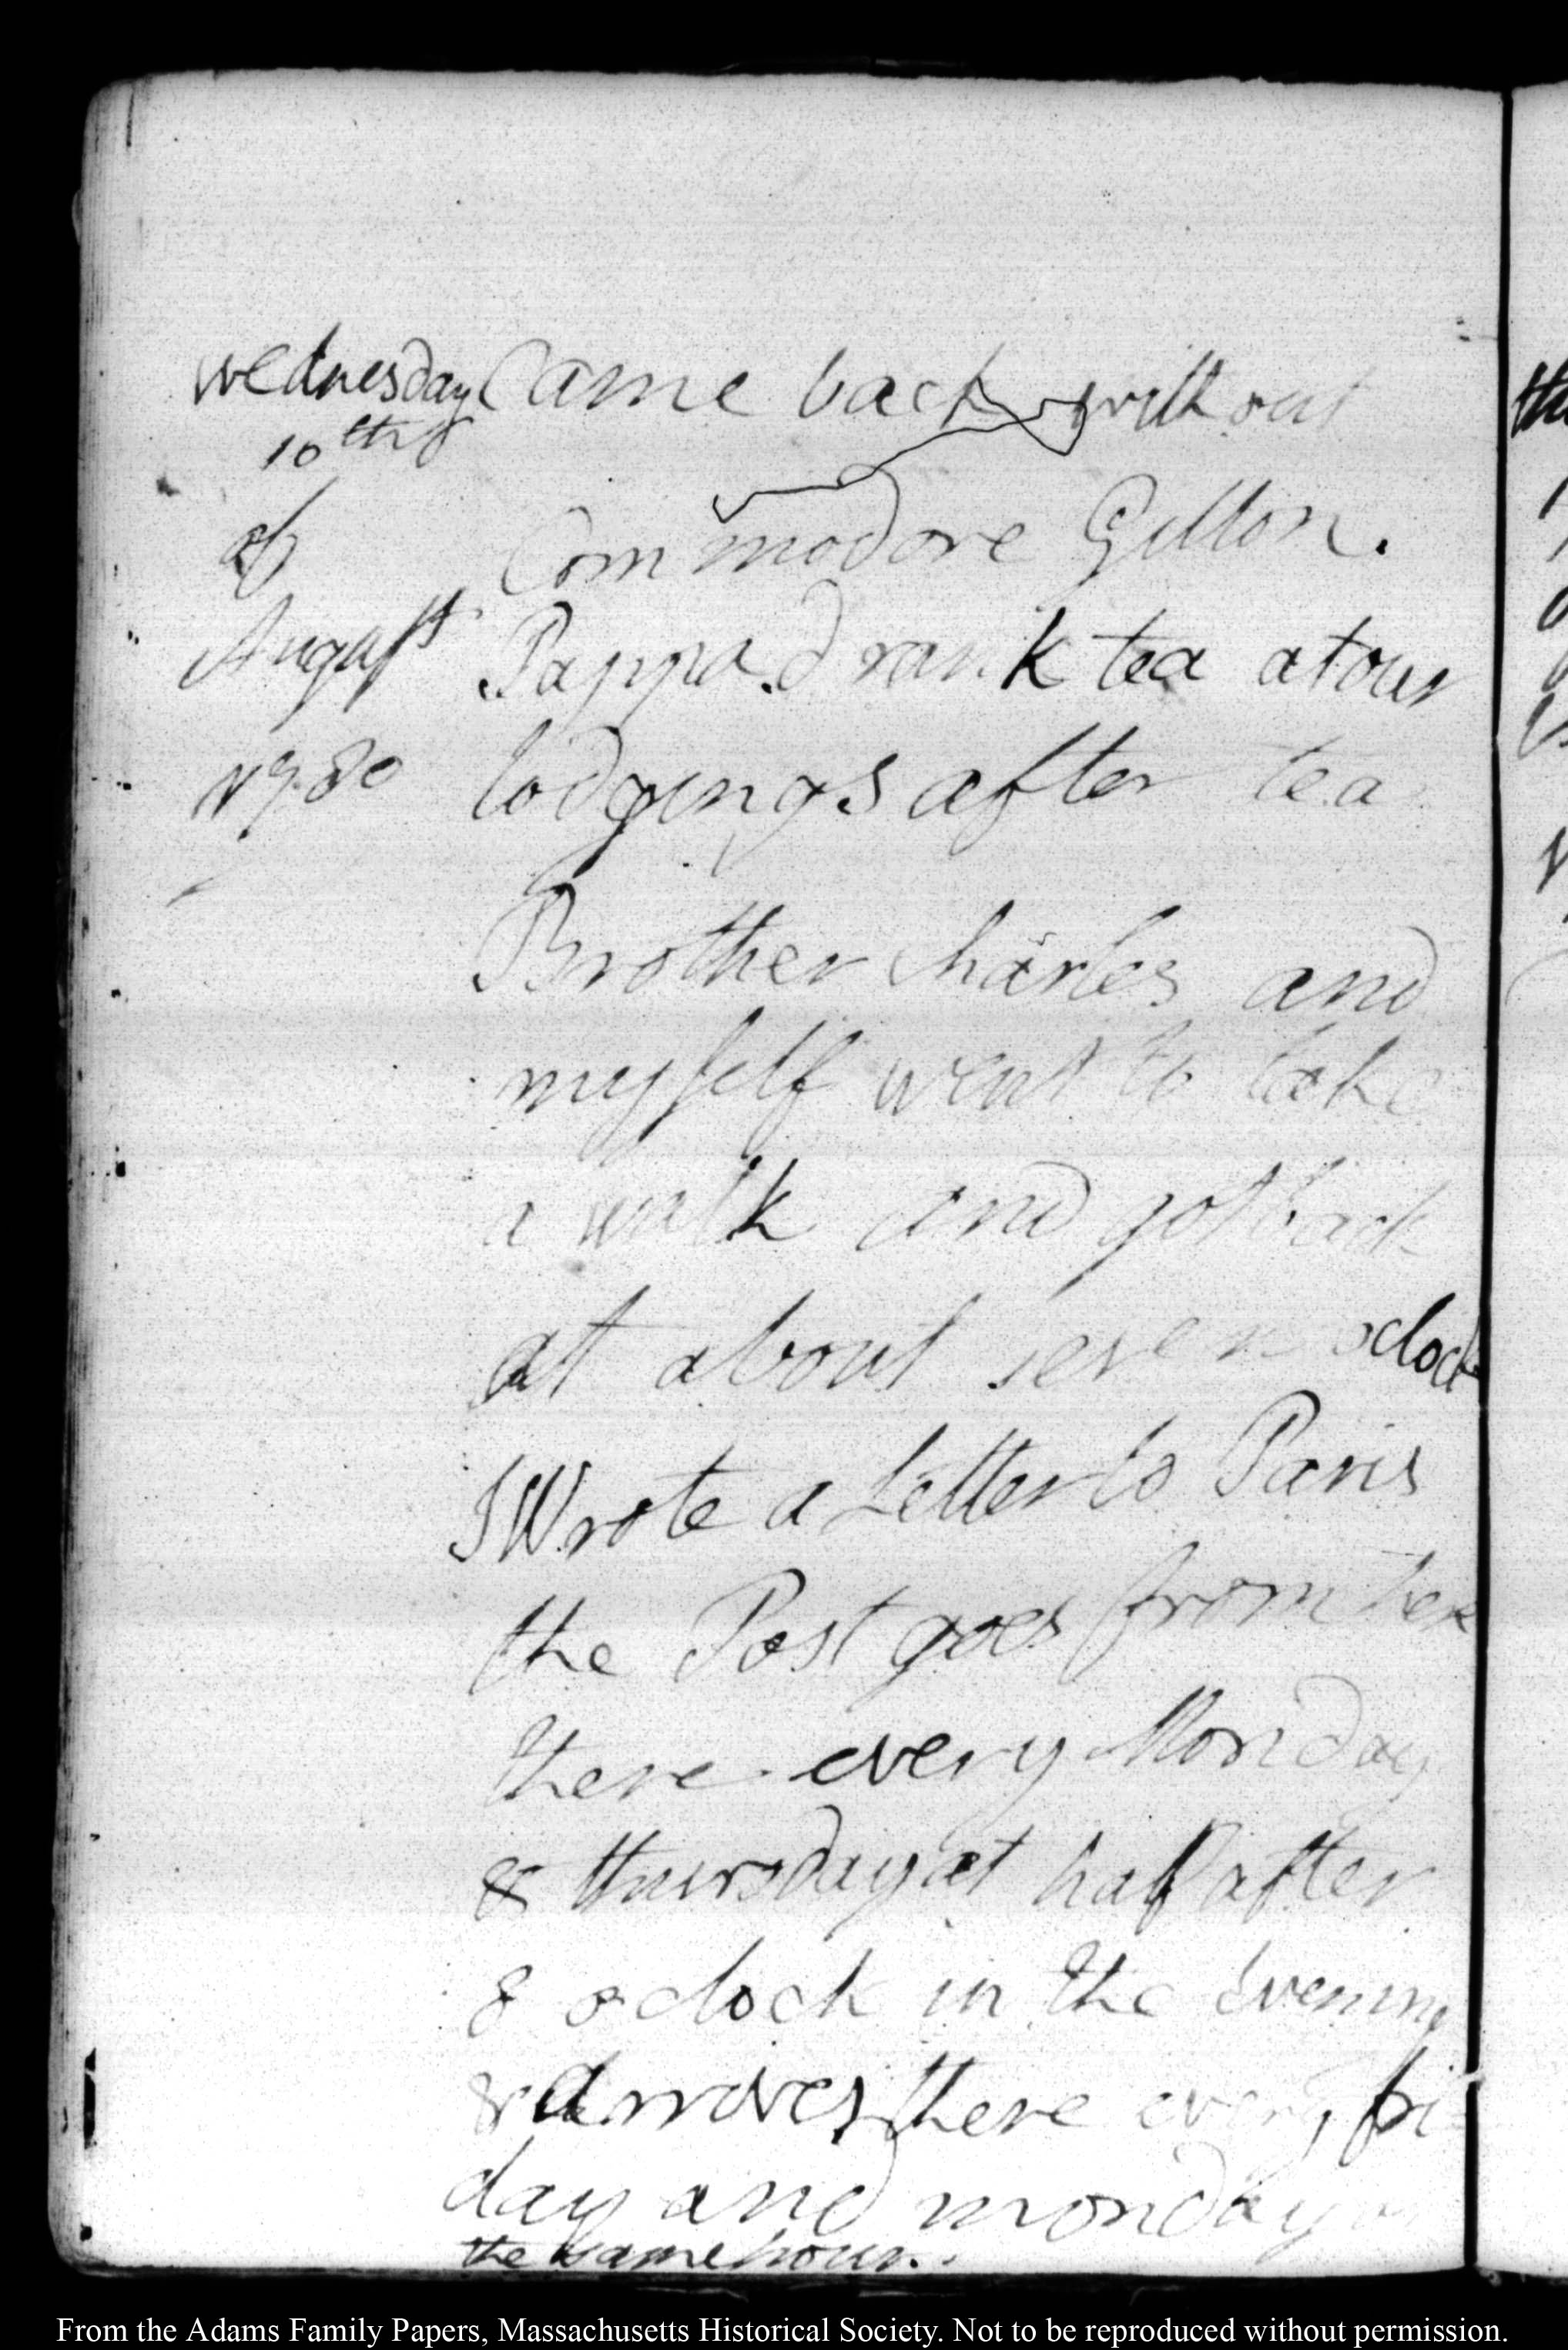 wednesday Came back without
10th
of Commodore Gillon.
August Pappa drank tea at our
1780 lodgings after tea
Brother Charles and
myself went to take
a walk and got back
at about seven oclock
I Wrote a Letter to Paris
the Post goes from here
there every Monday
& thursday at half after
8 oclock in the Evening
& arrives there every fri=
day and monday at
the same hour.
From the Adams Family Papers, Massachusetts Historical Society. Not to be reproduced without permission.